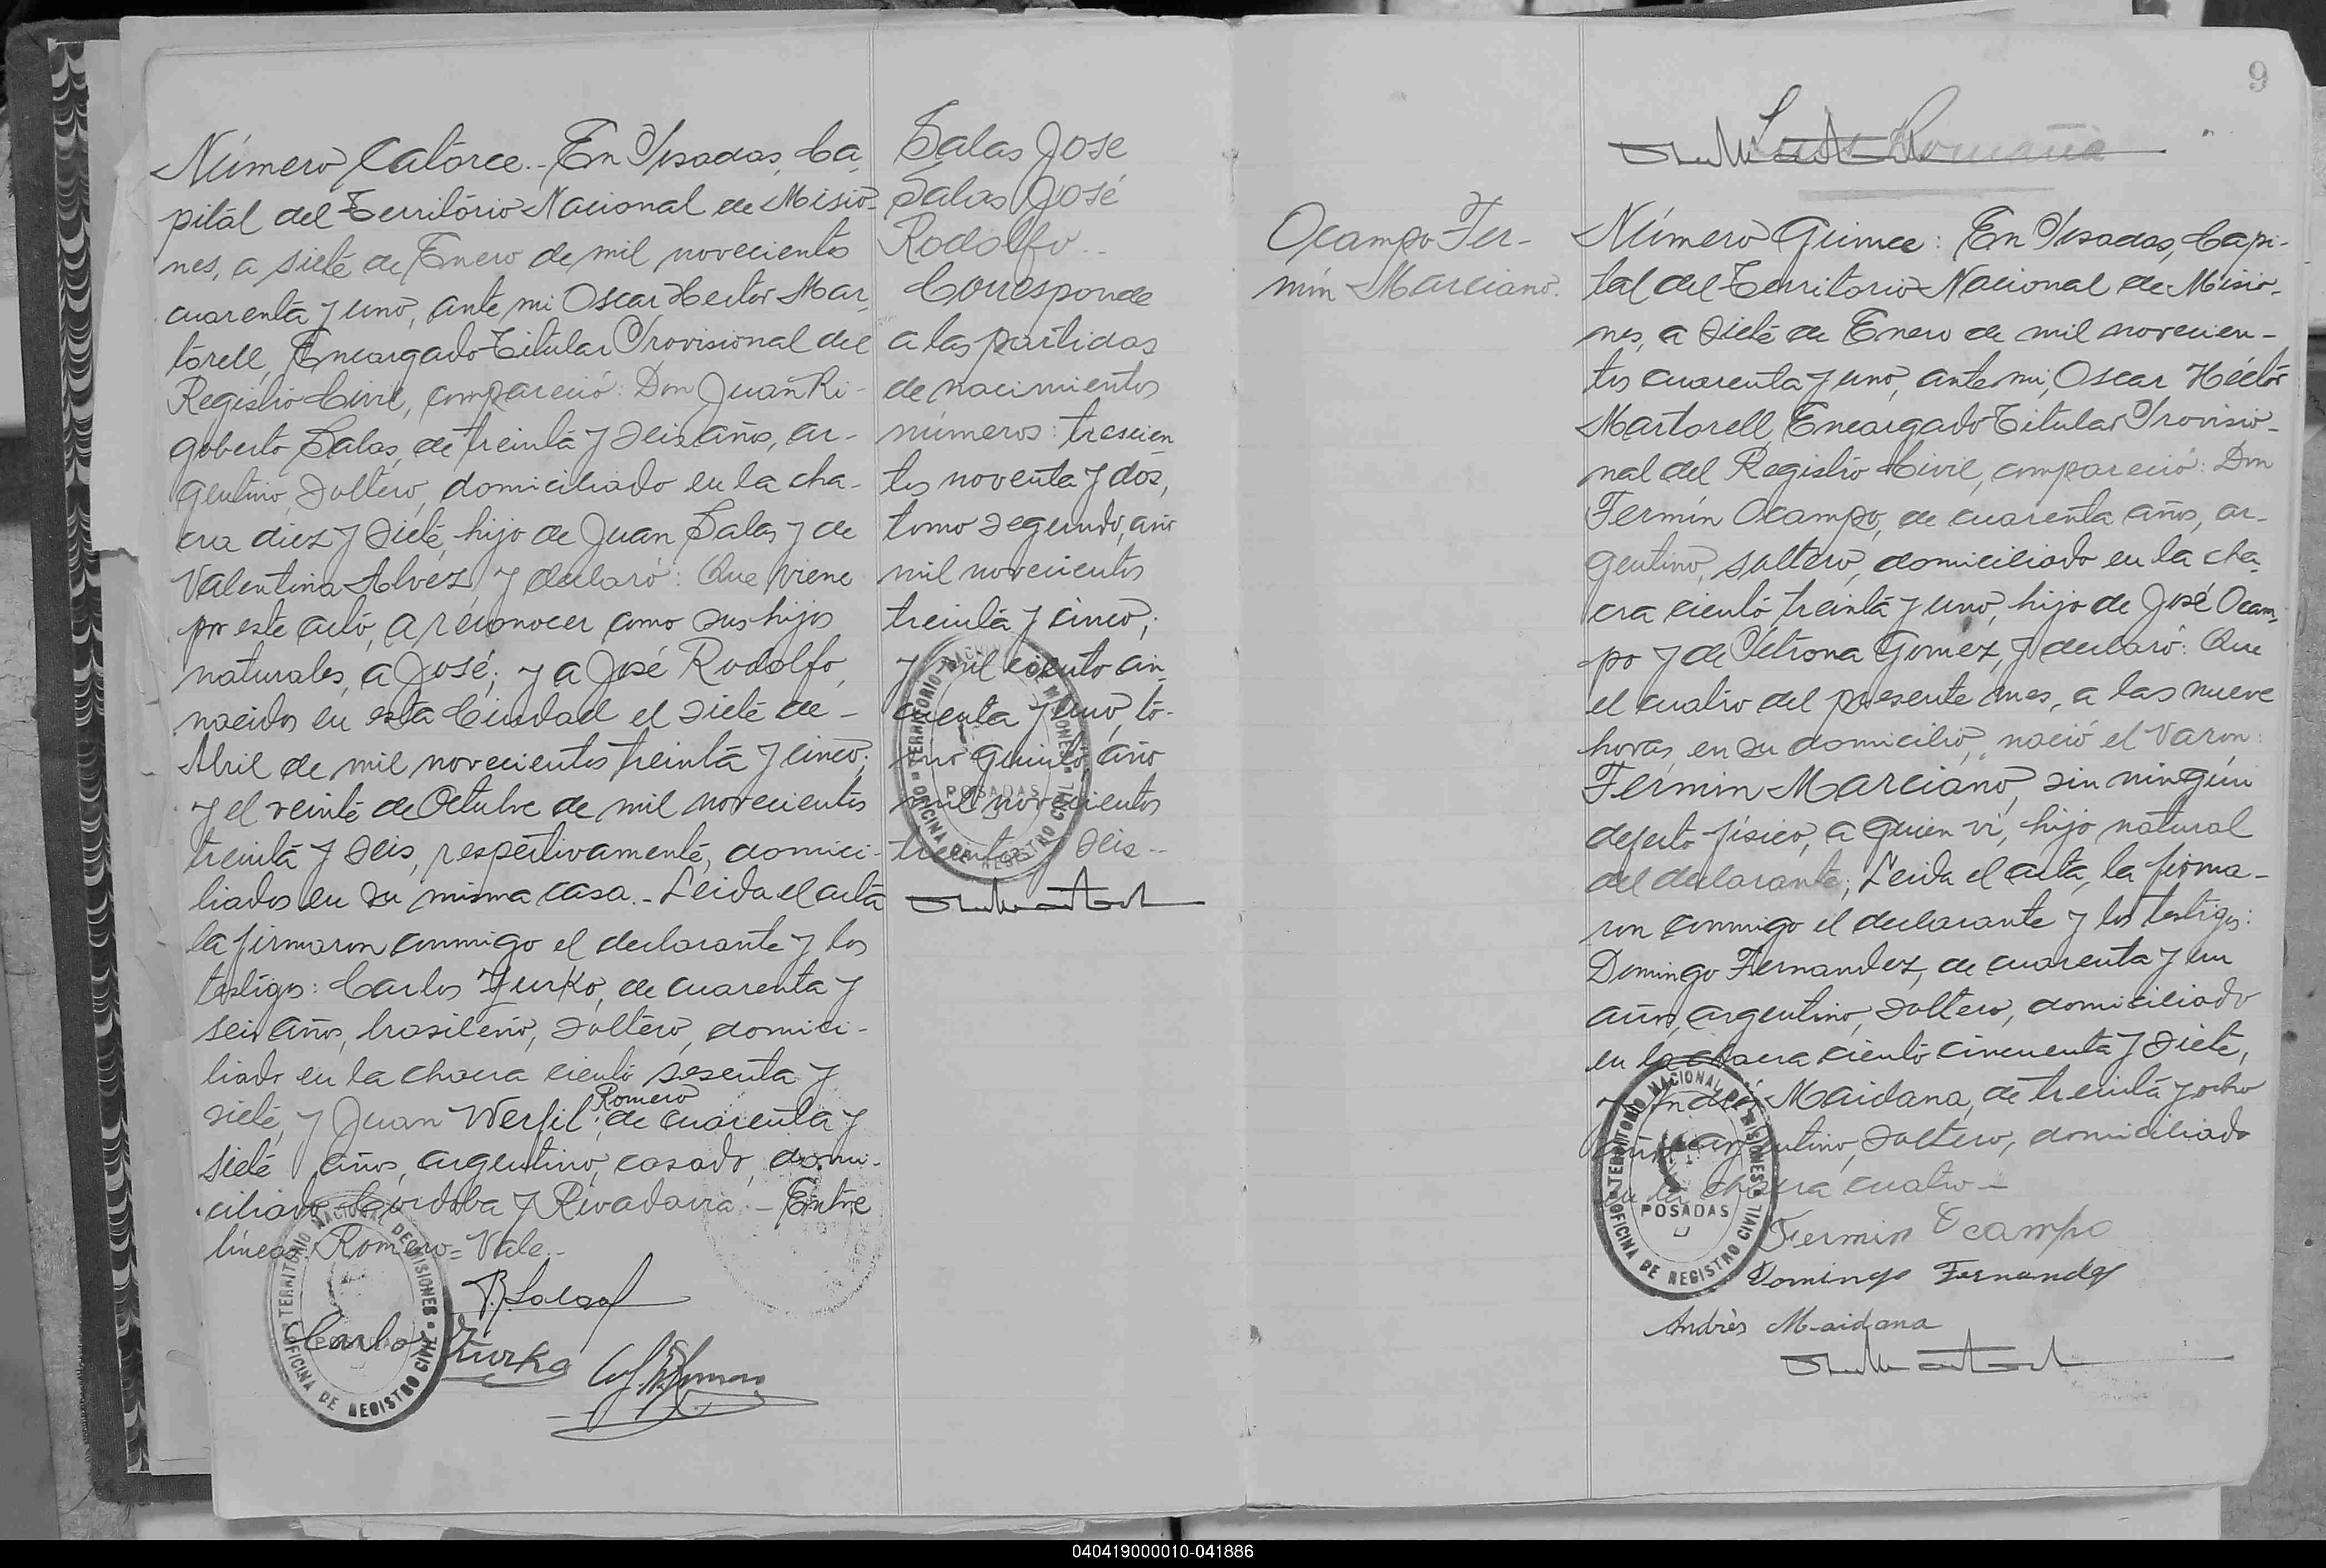 Número Catorce.- En Posadas, Ca-
pital del Territorio Nacional de Misio-
nes, a siete de Enero de mil novecientos
cuarenta y uno, ante mi Oscar Hector Mar-
torell, Encargado Titular Provisional del
Registro Civil, compareció: Don Juan Ri-
goberto Salas, de treinta y seis años, ar-
gentino, soltero, domiciliado en la cha-
cra diez y siete, hijo de Juan Salas y de
Valentina Alvez, y declaró: Que viene
por este acto, a reconocer como sus hijos
naturales, a José; y a José Rodolfo,
nacidos en esta Ciudad el siete de -
Abril de mil novecientos treinta y cinco;
y el veinte de Octubre de mil novecientos
treinta y seis, respectivamente, domici-
liados en su misma casa.- Leida el acta
la firmaron conmigo el declarante y los
testigos: Carlos Yurko, de cuarenta y
seis años, brasileño, soltero, domici-
liado en la chacra ciento sesenta y
Romero
siete, y Juan Werfil, de cuarenta y
siete años, argentino, casado, domi-
ciliado Córdoba y Rivadavia.- Entre
líneas: Romero = Vale.-
Carlos Yurko
Salas José
Salas José
Rodolfo.-
Corresponde
a las partidas
de nacimientos
números: trescien
tos noventa y dos,
tomo segundo, año
mil novecientos
treinta y cinco;
y mil ciento cin
cuenta y uno, to-
mo quinto, año
mil novecientos
treinta y seis.-
TERRITORIO NACIONAL DE MISIONES
POSADAS
OFICINA DE REGISTRO CIVIL
9
Ocampo Fer-
mín Marciano.
Número Quince: En Posadas, Capi-
tal del Territorio Nacional de Misio-
nes, a siete de Enero de mil novecien-
tos cuarenta y uno, ante mi, Oscar Héctor
Martorell, Encargado Titular Provisio-
nal del Registro Civil, compareció: Don
Fermín Ocampo, de cuarenta años, ar-
gentino, soltero, domiciliado en la cha-
cra ciento treinta y uno, hijo de José Ocam-
po y de Petrona Gomez, y declaró: Que
el cuatro del presente mes, a las nueve
horas, en su domicilio, nació el varon:
Fermin Marciano, sin ningún
defecto físico, a quien vi, hijo natural
del declarante; Leida el acta, la firma-
ron conmigo el declarante y los testigos:
Domingo Fernandez, de cuarenta y un
años, argentino, soltero, domiciliado
en la chacra ciento cincuenta y siete,
y Andrés Maidana, de treinta y ocho
años, argentino, soltero, domiciliado
en la chacra cuatro.-
Fermin Ocampo
Domingo Fernandez
Andrès Maidana
TERRITORIO NACIONAL DE MISIONES
POSADAS
OFICINA DE REGISTRO CIVIL
040419000010-041886